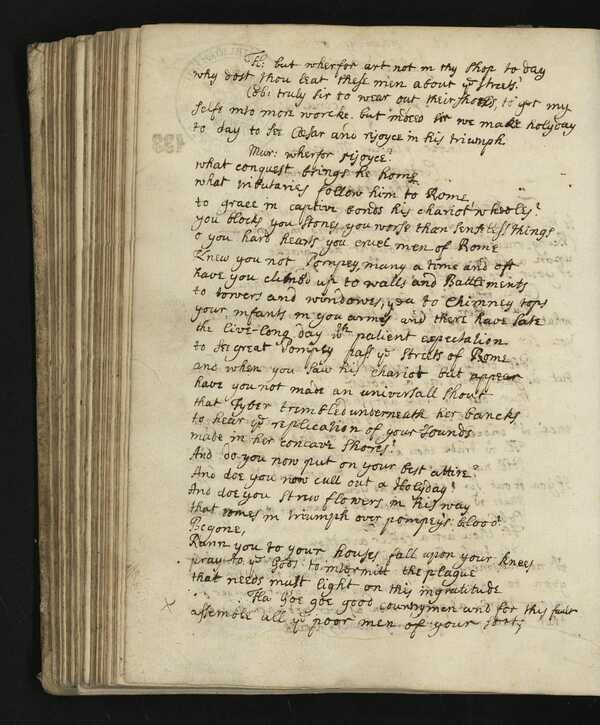 Fl: but wherfor art not in thy shop to day
why dost thou leat these men about ye streets?
Cob: truly sir to wear out their shooes, to get my
selfe into mor worcke. but indeed sir we make holyday
to day to see Cæsar and rejoyce in his triumph
Mur: wherfor rejoyce?
what conquest brings he home
what tributaries follow him to Rome
to grace in captive bonds his chariot wheeles?
you blocks you stones you worse than senseless things
o you hard hearts you cruel men of Rome
Knew you not Pompey, many a time and oft
have you climbd up to walls and Battlements
to towers and windowes, yea to Chimney tops
your infants in your armes and there have sate
the live-long day wth patient expectation
to see great Pompey pass ye streets of Rome
and when you saw his chariot but appear
have you not made an universall shout
that Tyber trembled underneath her bancks
to hear ye replication of your sounds
made in her concave shores?
And do you now put on your best attire?
And doe you now cull out a Holyday?
And doe you strew flowers in his way
that comes in triumph over pompeys blood?
Begone,
Runn you to your houses fall upon your knees
pray to ye Gods to intermitt the plague
that needs must light on this ingratitude
Fla Goe goe good countrymen and for this fault
assemble all ye poor men of your sort;
133